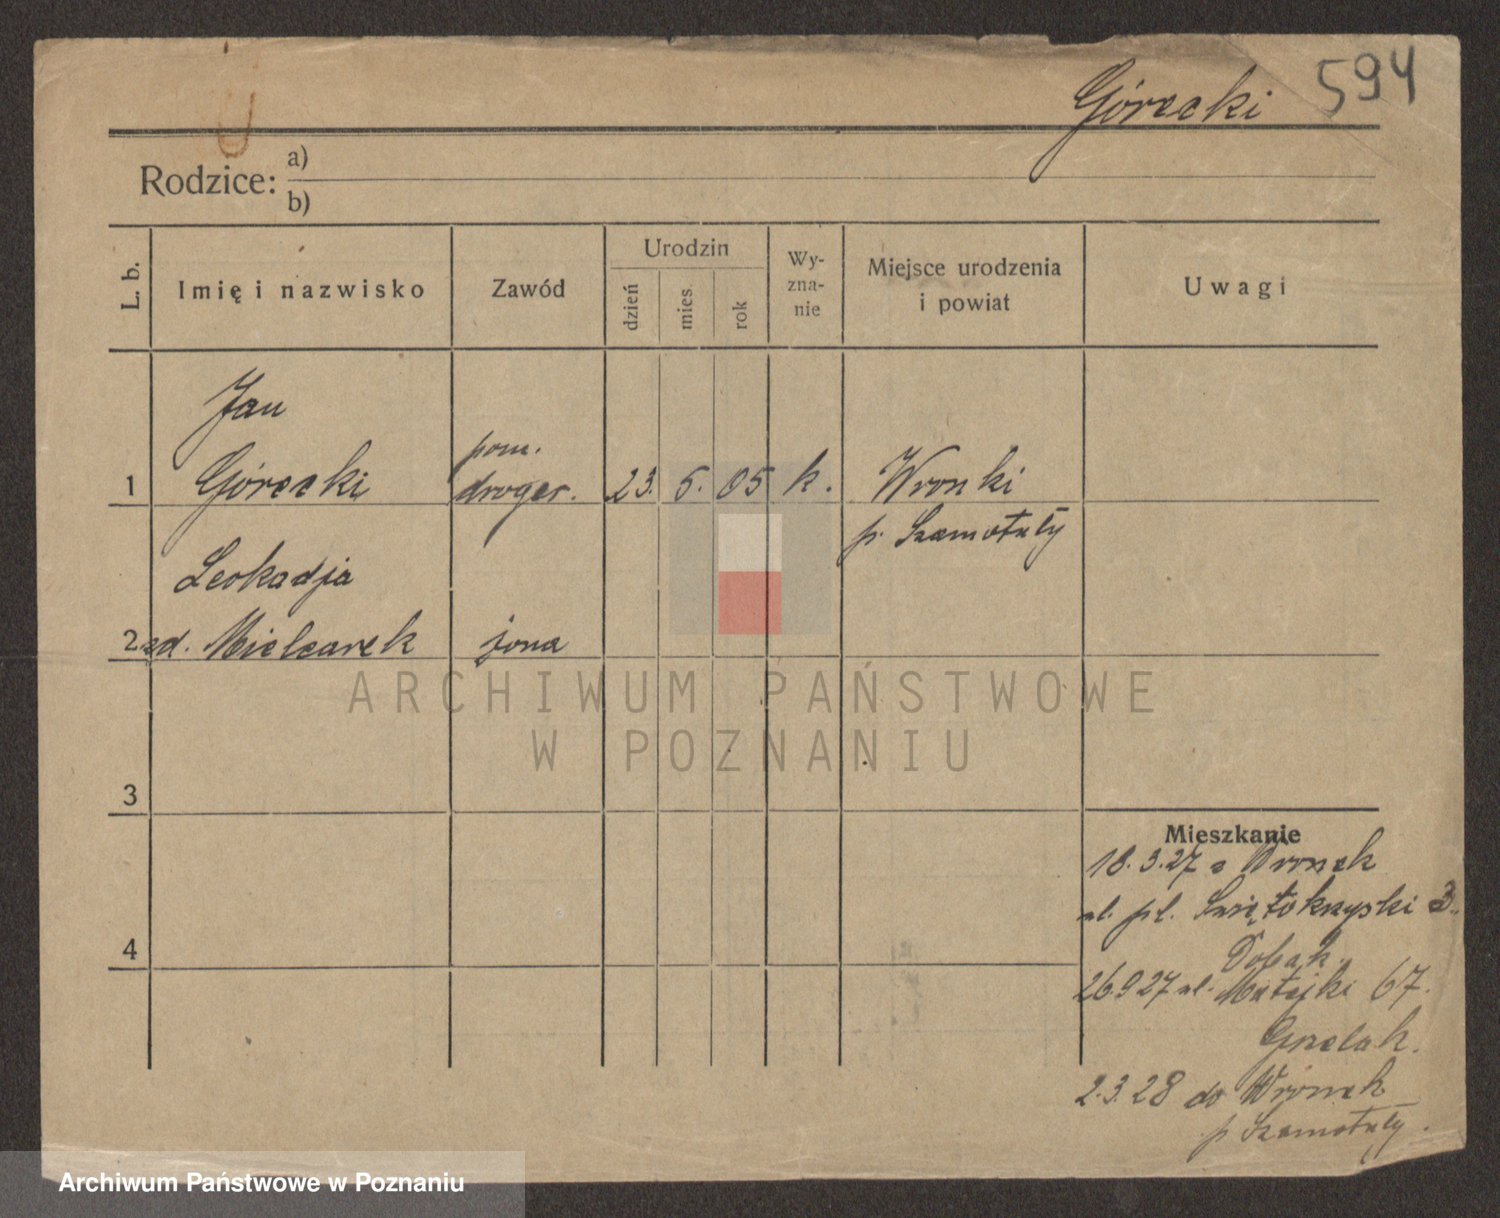 Górecki 594
Rodzice: a)
b)
L. b.
Imię i nazwisko
Zawód
Urodzin
dzień
mies.
rok
Wy-
zna-
nie
Miejsce urodzenia
i powiat
Uwagi
Jan
pom.
1 Górecki droger. 23. 5. 05 k. Wronki
p. Szamotuły
Leokadja
2 zd. Mielcarek żona
3
4
Mieszkanie
18.3.27 z Wronek
ul. pl. Świętokrzyski 3.
Dobak.
26.9.27 ul. Matejki 67.
Grzelak.
2.3.28 do Wronek
p Szamotuły.
ARCHIWUM PAŃSTWOWE
W POZNANIU
Archiwum Państwowe w Poznaniu